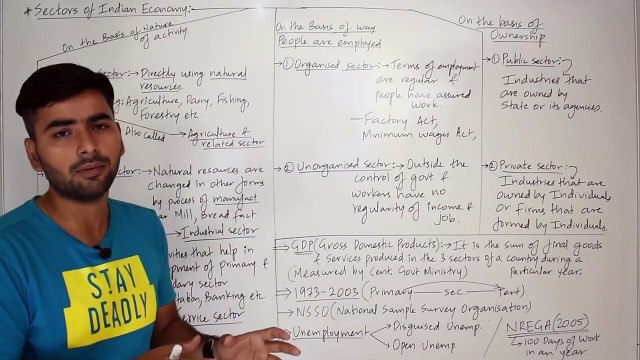 * Sectors of Indian Economy:-
On the Basis of Nature
of activity
Sector:→ Directly using natural
resources.
Eg: Agriculture, Dairy, Fishing,
forestry etc.
Also called → Agriculture &
related sector
Sector:→ Natural resources are
changed in other forms
by process of
Mill, Bread
→ Industrial sector
that help in
of primary &
sector
Banking etc
Service sector
On the Basis of way
People are employed
① Organised sector:→ Terms of employment
are regular &
people have assured
work.
— Factory Act,
Minimum wages Act,
② Unorganised sector:→ Outside the
control of govt &
workers have no
regularity of income &
job.
On the basis of
Ownership
① Public sector:
Industries that
are owned by
State or its agencies.
② Private sector:
Industries that are
owned by Individuals
or Firms that are
formed by Individuals.
→ GDP (Gross Domestic Products):→ It is the sum of final goods
& Services produced in the 3 sectors of a country during a
(Measured by Cent. Govt Ministry) particular year.
→ 1973-2003 (Primary sec Tert)
→ NSSO (National Sample Survey Organisation)
→ Unemployment → Disguised Unemp.
→ Open Unemp.
NREGA (2005)
→ 100 Days of Work
in an year
STAY
DEADLY